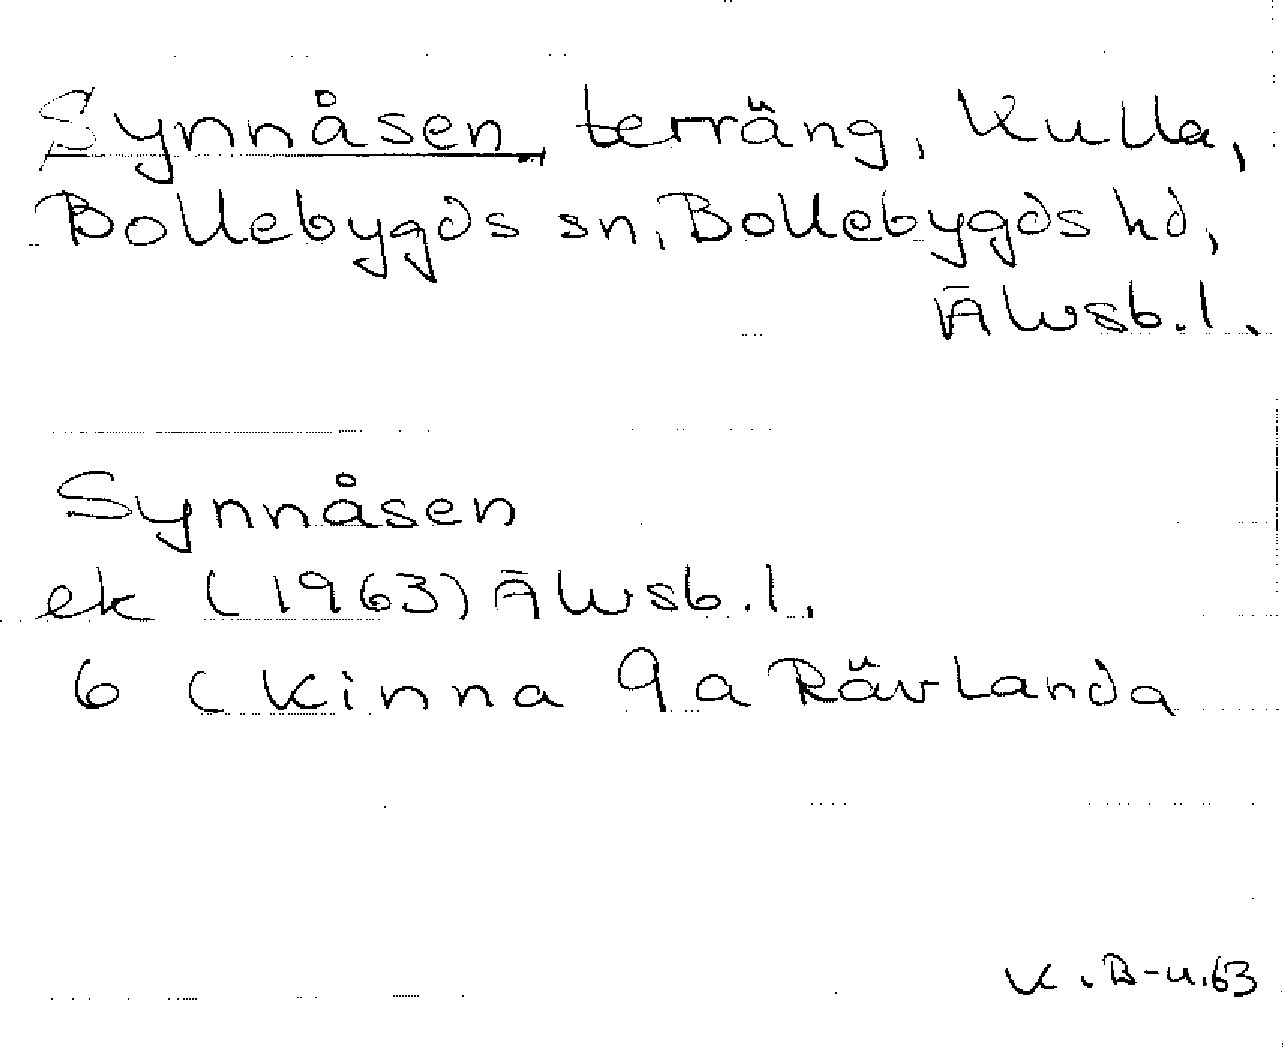 Synnåsen terräng, Kulla,
Bollebygds sn, Bollebygds hd,
Älvsb.l.
Synnåsen
ek (1963) Älvsb.l.
6 ( Kinna 9a Rävlanda
K.B-u.63